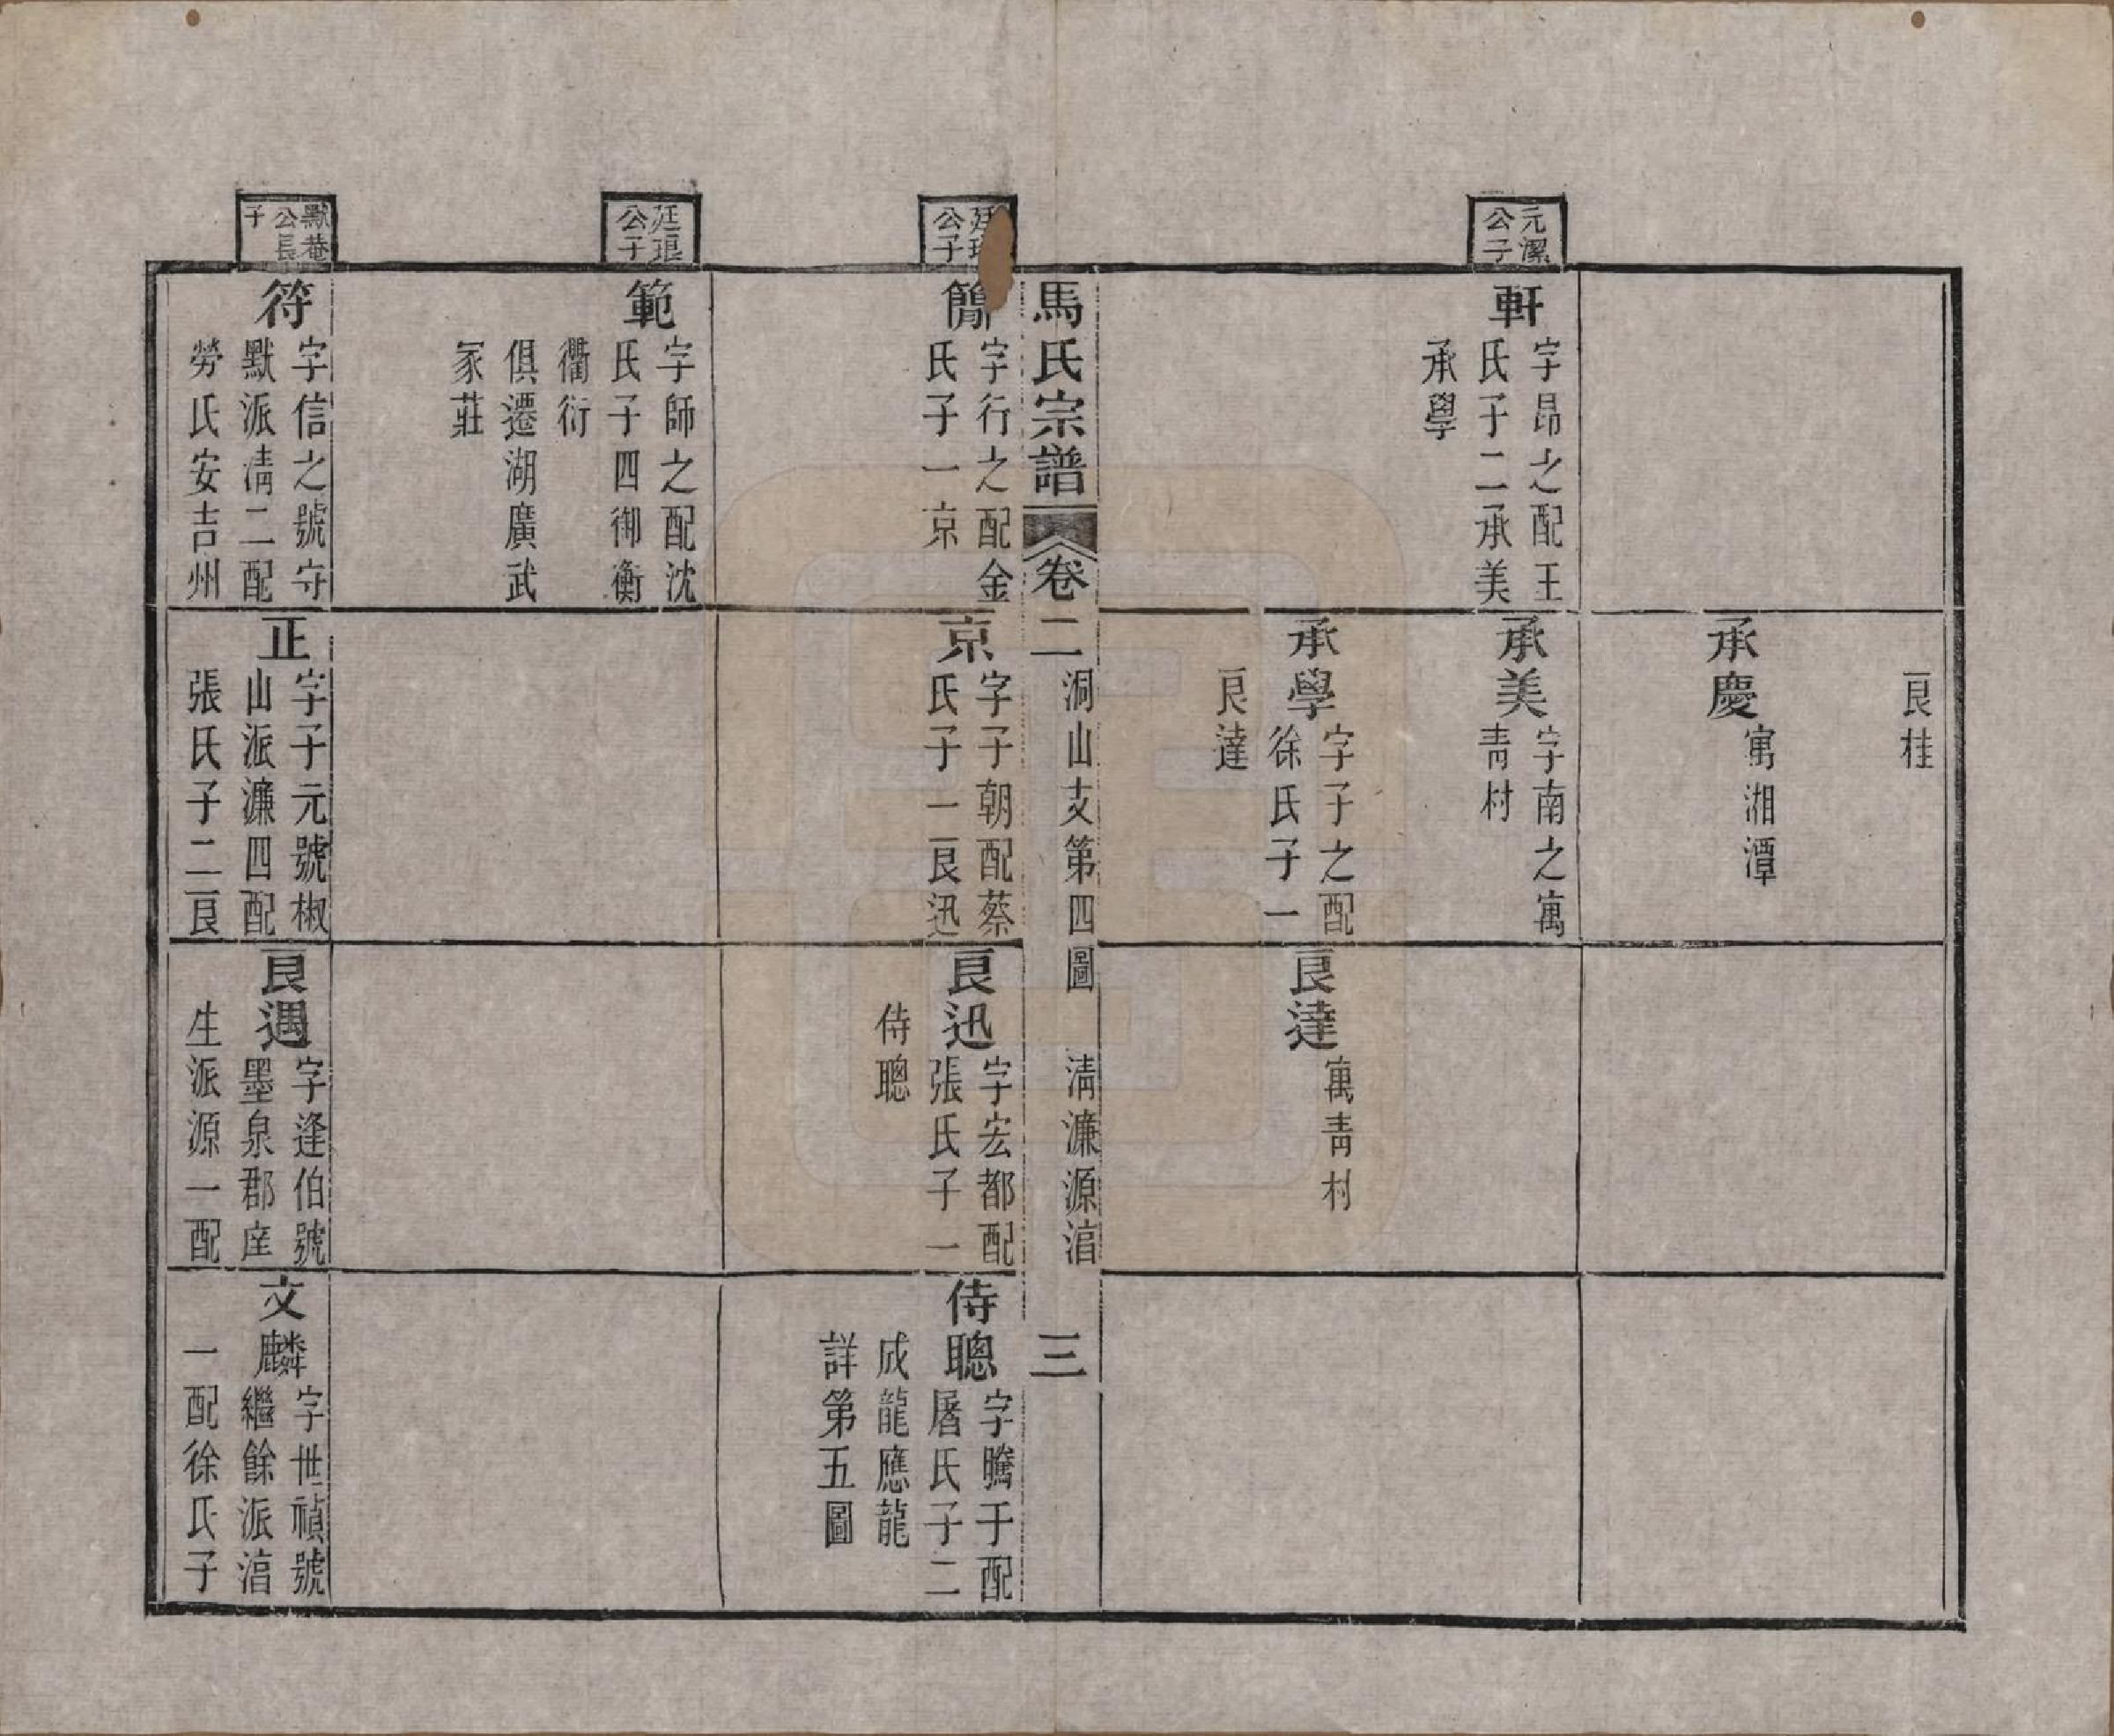 良桂
承慶
寓湘潭
元潔
公子
軒
字昂之配王
氏子二承美
承學
承美
字南之寓
青村
承學
字子之配
徐氏子一
良達
良達
寓青村
馬氏宗譜
卷二
洞山支第四圖
清濂源湻
三
公子
簡
字行之配金
氏子一京
京
字子朝配蔡
氏子一良迅
良迅
字宏都配
張氏子一
侍聰
侍聰
字騰于配
屠氏子二
成龍應龍
詳第五圖
廷琅
公子
範
字師之配沈
氏子四御衡
衢衍
俱遷湖廣武
冢莊
默菴
公長
子
符
字信之號守
默派清二配
勞氏安吉州
正
字子元號椒
山派濂四配
張氏子二良
良遇
字逢伯號
墨泉郡庠
生派源一配
文麟
字世禎號
繼餘派湻
一配徐氏子